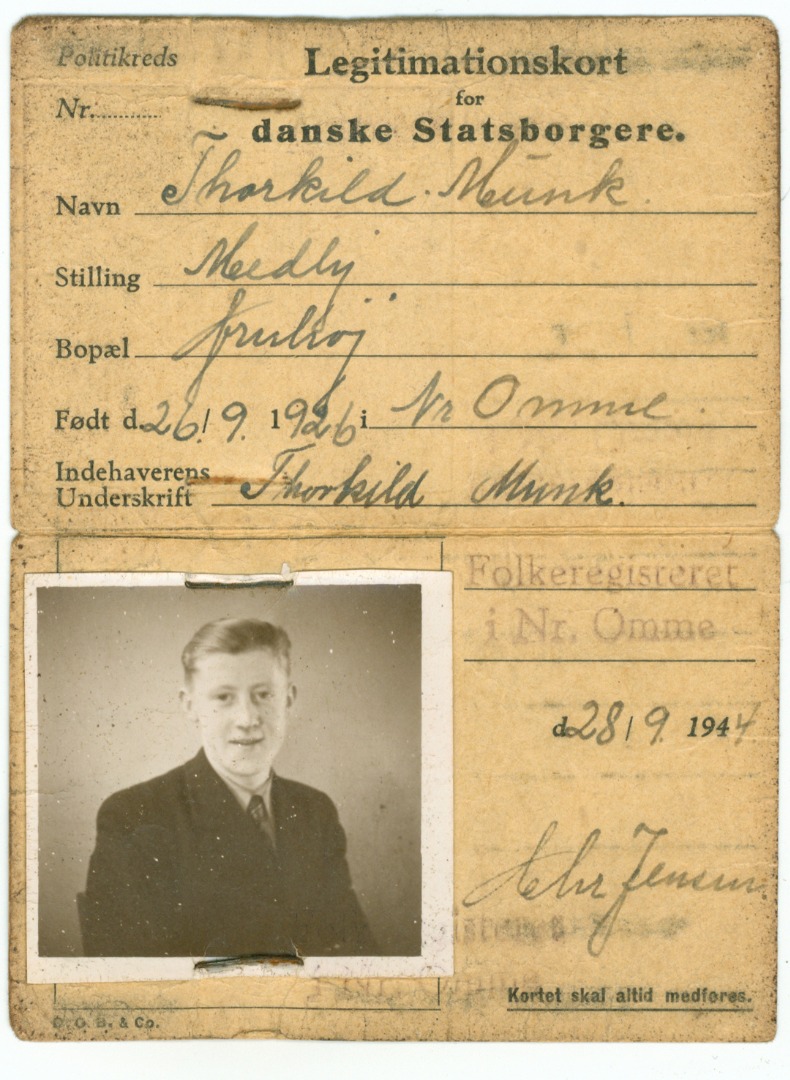 Politikreds
Legitimationskort
Nr.
for
danske Statsborgere.
Navn Thorkild Munk.
Stilling Medhj.
Bopæl
Født d. 26/9. 1926 i Nr Omme.
Indehaverens
Underskrift Thorkild Munk.
Folkeregisteret
i Nr. Omme
d. 28/9. 1944
Chr Jensen.
Kortet skal altid medføres.
& Co.